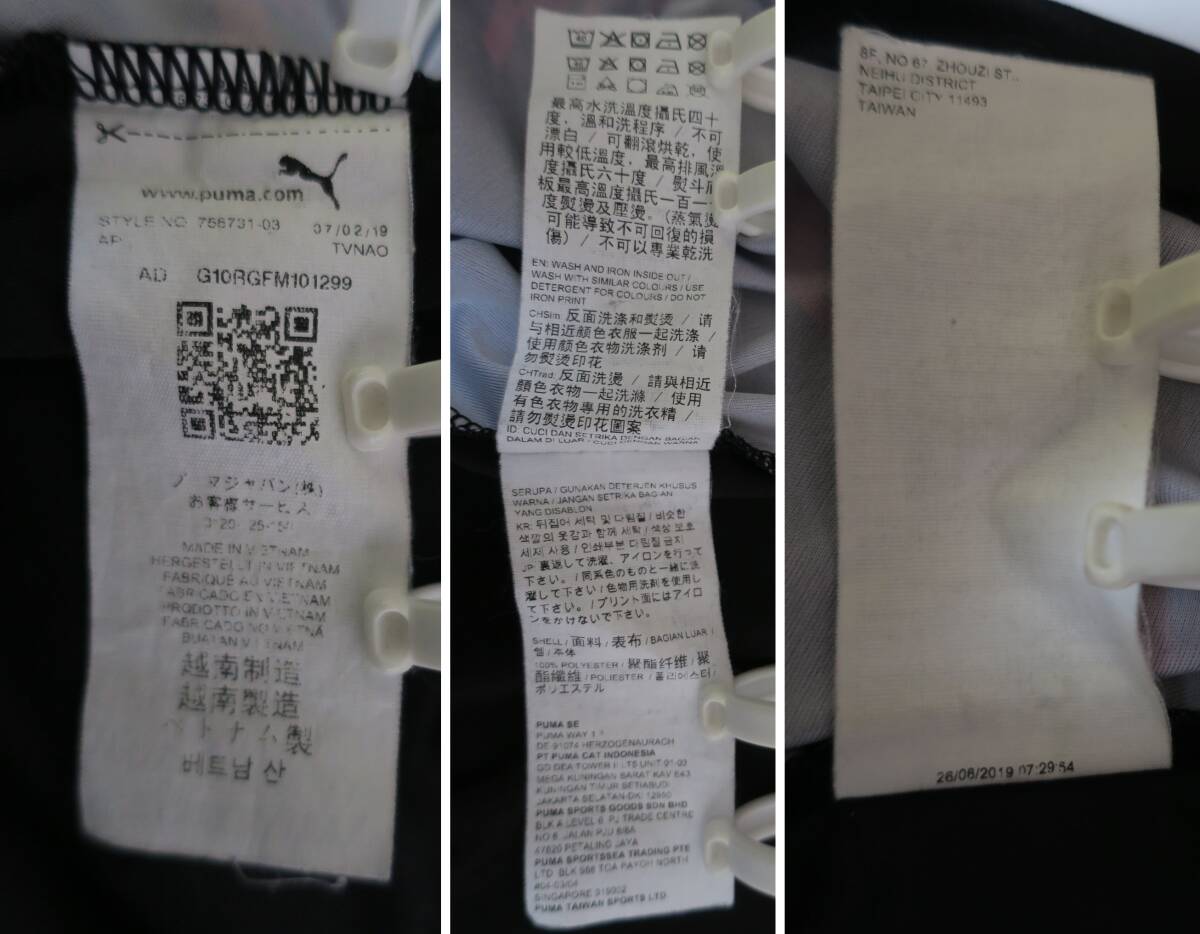 www.puma.com
STYLE NO 756731-03 07/02/19
AP TVNAO
AD G10RGFM101299
マジャパン(株)
お客様サービス
MADE IN VIETNAM
HERGESTELLT IN VIETNAM
FABRIQUÉ AU VIETNAM
FABRICADO EN VIETNAM
PRODOTTO IN VIETNAM
FABRICADO NO
BUATAN VIETNAM
越南制造
越南製造
ベトナム製
베트남 산
最高水洗溫度攝氏四十
度，溫和洗程序 / 不可
漂白 / 可翻滾烘乾，使
用較低溫度，最高排風溫
度攝氏六十度 / 熨斗底
板最高溫度攝氏一百一十
度熨燙及壓燙。(蒸氣燙
可能導致不可回復的損
傷) / 不可以專業乾洗
EN: WASH AND IRON INSIDE OUT /
WASH WITH SIMILAR COLOURS / USE
DETERGENT FOR COLOURS / DO NOT
IRON PRINT
CHSim: 反面洗涤和熨烫 / 请
与相近颜色衣服一起洗涤 /
使用颜色衣物洗涤剂 / 请
勿熨烫印花
CHTrad: 反面洗燙 / 請與相近
顏色衣物一起洗滌 / 使用
有色衣物專用的洗衣精 /
請勿熨燙印花圖案
ID: CUCI DAN SETRIKA DENGAN BAGIAN
DALAM DI LUAR / CUCI DENGAN WARNA
SERUPA / GUNAKAN DETERJEN KHUSUS
WARNA / JANGAN SETRIKA BAGIAN
YANG DISABLON
KR: 뒤집어 세탁 및 다림질 / 비슷한
색깔의 옷감과 함께 세탁 / 색상 보호
세제 사용 / 인쇄부분 다림질 금지
JP: 裏返して洗濯、アイロンを行って
下さい。/ 同系色のものと一緒に洗
濯して下さい / 色物用洗剤を使用し
て下さい。/ プリント面にはアイロ
ンをかけないで下さい。
SHELL / 面料 / 表布 / BAGIAN LUAR /
겉 / 本体
100% POLYESTER / 聚酯纤维 / 聚
酯纖維 / POLIESTER / 폴리에스터 /
ポリエステル
PUMA SE
PUMA WAY 1
DE 91074 HERZOGENAURACH
PT PUMA CAT INDONESIA
GD DEA TOWER II LTS UNIT 01-03
MEGA KUNINGAN BARAT KAV E43
KUNINGAN TIMUR SETIABUDI
JAKARTA SELATAN-DKI 12950
PUMA SPORTS GOODS SDN BHD
BLK A LEVEL 6 PJ TRADE CENTRE
NO 8 JALAN PJU 8/8A
47820 PETALING JAYA
PUMA SPORTSSEA TRADING PTE
LTD BLK 998 TOA PAYOH NORTH
#04-03/04
SINGAPORE 318992
PUMA TAIWAN SPORTS LTD.
8F, NO 67, ZHOUZI ST.,
NEIHU DISTRICT
TAIPEI CITY 11493
TAIWAN
26/06/2019 07:29:54